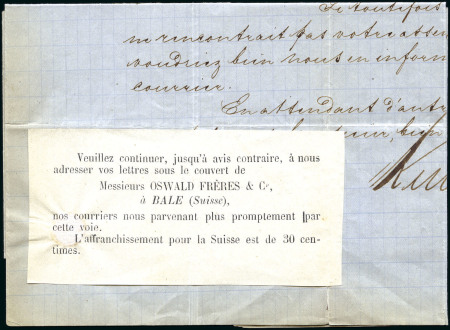 Si toutefois
ne rencontrait pas votre assen
voudriez bien nous en inform
courrier.
En attendant d'autr
bien
Veuillez continuer, jusqu'à avis contraire, à nous
adresser vos lettres sous le couvert de
Messieurs OSWALD FRÈRES & Cᵉ,
à BALE (Suisse),
nos courriers nous parvenant plus promptement par
cette voie.
L'affranchissement pour la Suisse est de 30 cen-
times.